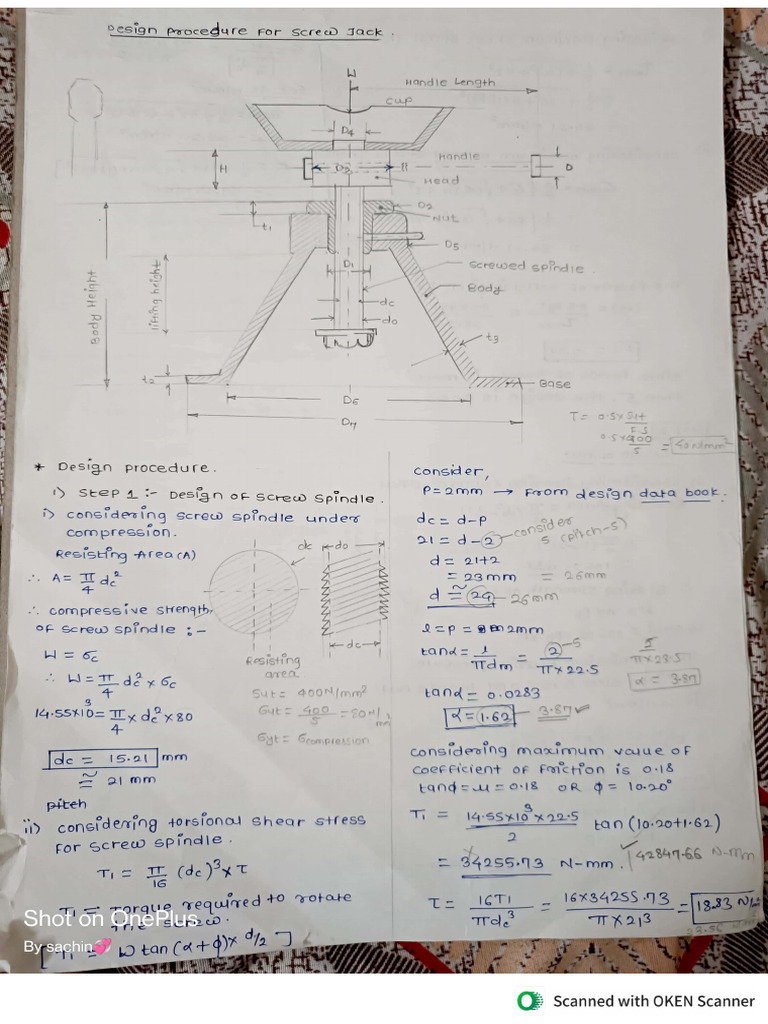 Design Procedure For Screw Jack.
W
Handle Length
cup
D4
H
D3
Handle
D
Head
D2
Nut
t1
D5
D1
screwed spindle.
Body
Body Height
lifting height
dc
do
t3
t2
Base
D6
D7
T = 0.5×Sut/F.S
0.5×400/5 =
* Design procedure.
1) Step 1 :- Design of screw spindle.
i) considering screw spindle under
compression.
Resisting Area (A)
∴ A = π/4 dc²
∴ compressive strength
of screw spindle :-
W = σc
∴ W = π/4 dc² × σc
14.55×10³ = π/4 × dc² × 80
dc = 15.21 mm
≅ 21 mm
pitch
ii) considering torsional shear stress
for screw spindle.
T1 = π/16 (dc)³ × τ
T1 = Torque required to rotate
the screw.
[ T1 = W tan (α+ϕ) × d/2 ]
dc
do
dc
Resisting
area
Sut = 400N/mm²
σut = 400/5 = 80N/mm²
σyt = σcompression
consider,
P = 2mm → From design data book.
dc = d-p
21 = d-2
consider
5 (pitch-5)
d = 21+2
= 23mm = 26mm
d ≅ 24 26mm
l = p = 2mm
tanα = l/πdm = 2/π×22.5
5
5/π×23.5
α = 3.87
tanα = 0.0283
α = 1.62 3.87 ✓
considering maximum value of
coefficient of friction is 0.18
tanϕ = μ = 0.18 OR ϕ = 10.20°
T1 = 14.55×10³×22.5/2 tan (10.20+1.62)
= 34255.73 N-mm. 42847.66 N-mm
τ = 16T1/πdc³ = 16×34255.73/π×21³ = 18.83 N/
Shot on OnePlus
By sachin💕
Scanned with OKEN Scanner